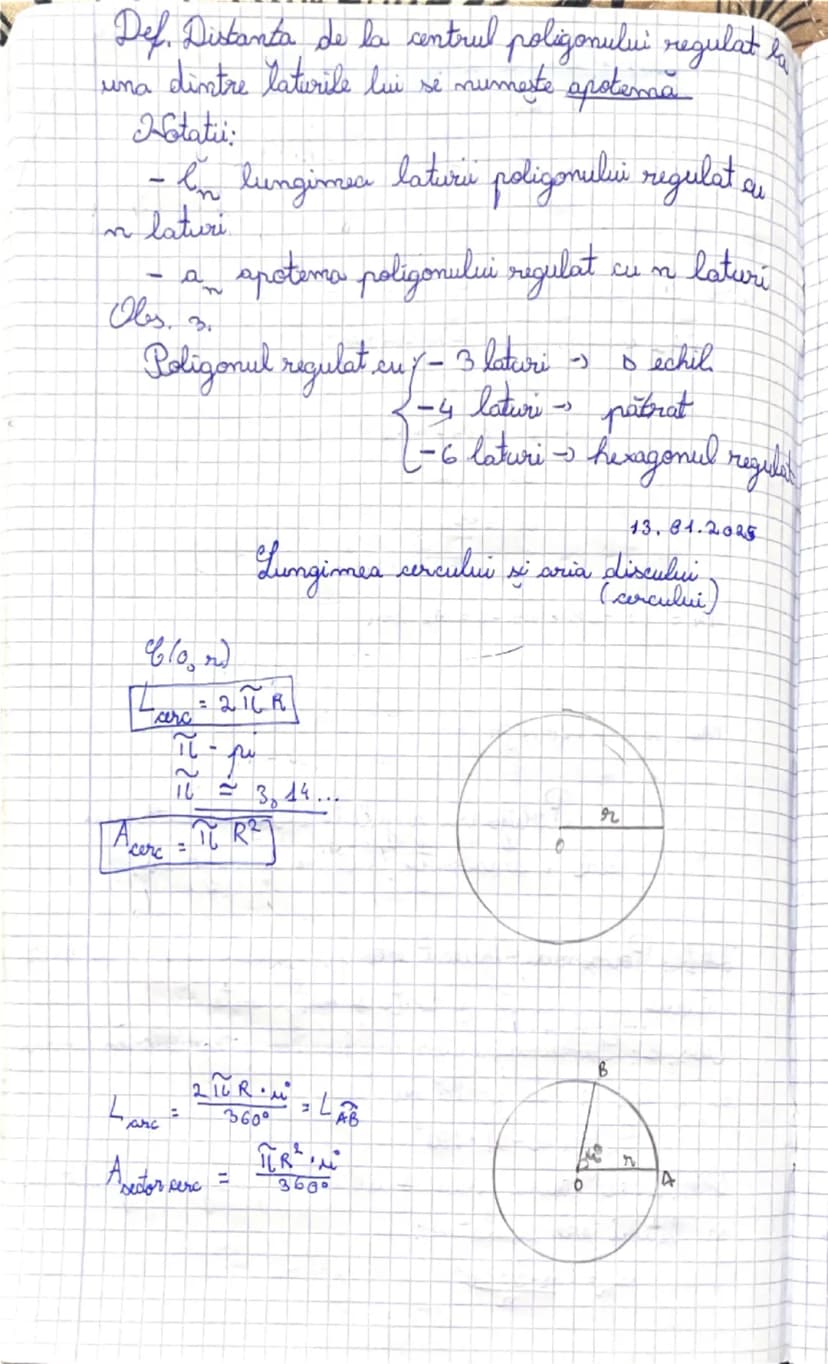 Def. Distanta de la centrul poligonului regulat la
una dintre laturile lui se numește apotemă
Notatii:
- lₙ lungimea laturii poligonului regulat cu
n laturi
- aₙ apotema poligonului regulat cu n laturi
Obs. 3.
Poligonul regulat cu { - 3 laturi → Δ echil.
- 4 laturi → pătrat
- 6 laturi → hexagonul regulat
13.01.2025
Lungimea cercului și aria discului
(cercului)
C(o, r)
L cerc = 2πR
π - pi
π ≃ 3,14...
A cerc = πR²
r
O
L arc = 2πR · u° / 360° = L AB
A sector cerc = πR² · u° / 360°
B
u°
r
O
A